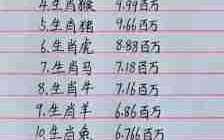 4.生肖猴 9.99百万
5.生肖猪 9.66百万
6.生肖虎 8.88百万
7.生肖马 7.18百万
8.生肖牛 7.16百万
9.生肖羊 6.86百万
10.生肖兔 6.766百万